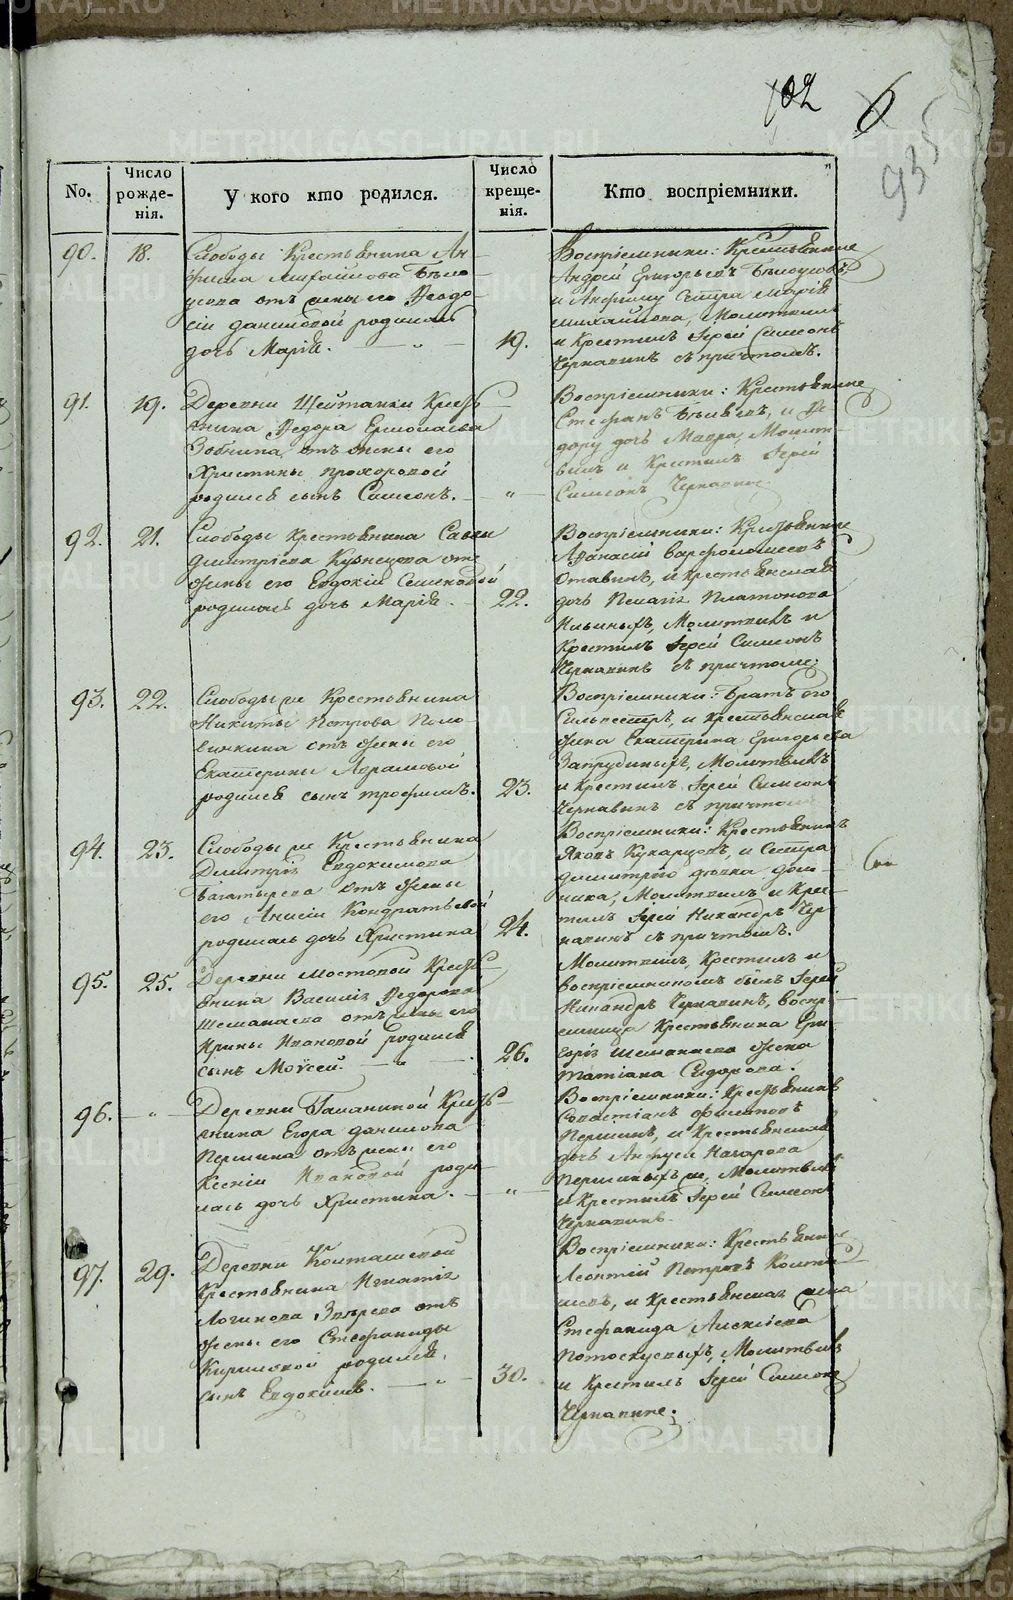 METRIKI.GASO-URAL.RU
102 6
935
No.
Число рожде-нія.
У кого кто родился.
Число креще-нія.
Кто воспріемники.
90. 18.
Слободы Крестьянина Ан-
фима Михайлова Бѣло-
усова отъ жены его Ѳеодо-
сіи Даниловой родилась
дочь Марія.
19.
Воспріемники: Крестьянинъ
Андрей Григорьевъ Бѣлоусовъ,
и Анфиму сестра Марія
Михайлова, Молитвилъ
и Крестилъ Іерей Симеонъ
Чернавинъ съ причтомъ.
91. 19.
Деревни Шейтанки Кресть-
янина Ѳедора Ермолаева
Зобнина, отъ жены его
Христины Прохоровой
родился сынъ Самсонъ.
"
Воспріемники: Крестьянинъ
Стефанъ Бѣляевъ, и Ѳе-
дору дочь Мавра, Молит-
вилъ и Крестилъ Іерей
Симеонъ Чернавинъ.
92. 21.
Слободы Крестьянина Саввы
Димитріева Кузнецова отъ
жены его Евдокіи Семеновой
родилась дочь Марія.
22.
Воспріемники: Крестьянинъ
Аѳанасій Варфоломеевъ
и крестьянская
дочь Пелагія Платонова
Ильиныхъ, Молитвилъ и
Крестилъ Іерей Симеонъ
Чернавинъ съ причтомъ.
93. 22.
Слободы же Крестьянина
Никиты Петрова Поло-
винкина отъ жены его
Екатерины Абрамовой
родился сынъ Трофимъ.
23.
Воспріемники: братъ его
Сильвестръ, и крестьянская
жена Екатерина Григорьева
Запрудиныхъ, Молитвилъ
и крестилъ Іерей Симеонъ
Чернавинъ съ причтомъ
94. 23.
Слободы же Крестьянина
Димитрія Евдокимова
Богатырева отъ жены
его Анисіи Кондратьевой
родилась дочь Христина
24.
Воспріемники: Крестьянинъ
Яковъ Кукарцовъ, и сестра
Димитрію дѣвка Дом-
ника, Молитвилъ и Крес-
тилъ Іерей Никандръ Чер-
навинъ съ причтомъ.
95. 25.
Деревни Мостовой Кресть-
янина Василія Ѳедорова
Шеманаева отъ жены его
Ирины Ивановой родился
сынъ Моѵсей.
26.
Молитвилъ, Крестилъ и
воспріемникомъ былъ Іерей
Никандръ Чернавинъ, воспрі-
емница Крестьянина Гри-
горія Шеманаева жена
Татіана Сидорова.
96. "
Деревни Гаманиной Кресть-
янина Егора Данилова
Першина отъ жены его
Ксеніи Ивановой роди-
лась дочь Христина.
"
Воспріемники: Крестьянинъ
Севастіанъ Филиповъ
Першинъ, и Крестьянская
дочь Назарова
Першиныхъ же, Молитвилъ
и Крестилъ Іерей Симеонъ
Чернавинъ.
97. 29.
Деревни Колташевой
Крестьянина Игнатія
Логинова Звѣрева отъ
жены его Стефаниды
Кириловой родился
сынъ Евдокимъ.
30.
Воспріемники: Крестьянинъ
Леонтій Петровъ Колта-
шевъ, и Крестьянская жена
Стефанида Алексіева
Потоскуевыхъ, Молитвилъ
и Крестилъ Іерей Симеонъ
Чернавинъ.